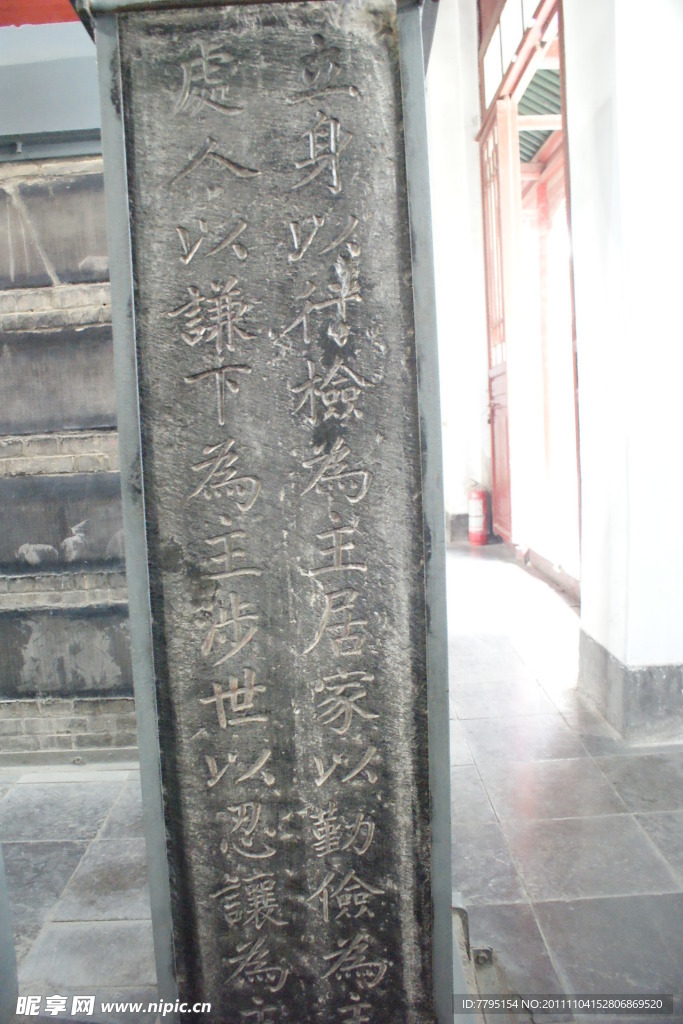 立身以行檢為主居家以勤儉為主
處今以謙下為主涉世以忍讓為主
昵享网 www.nipic.cn
ID:7795154 NO:20111104152806869520